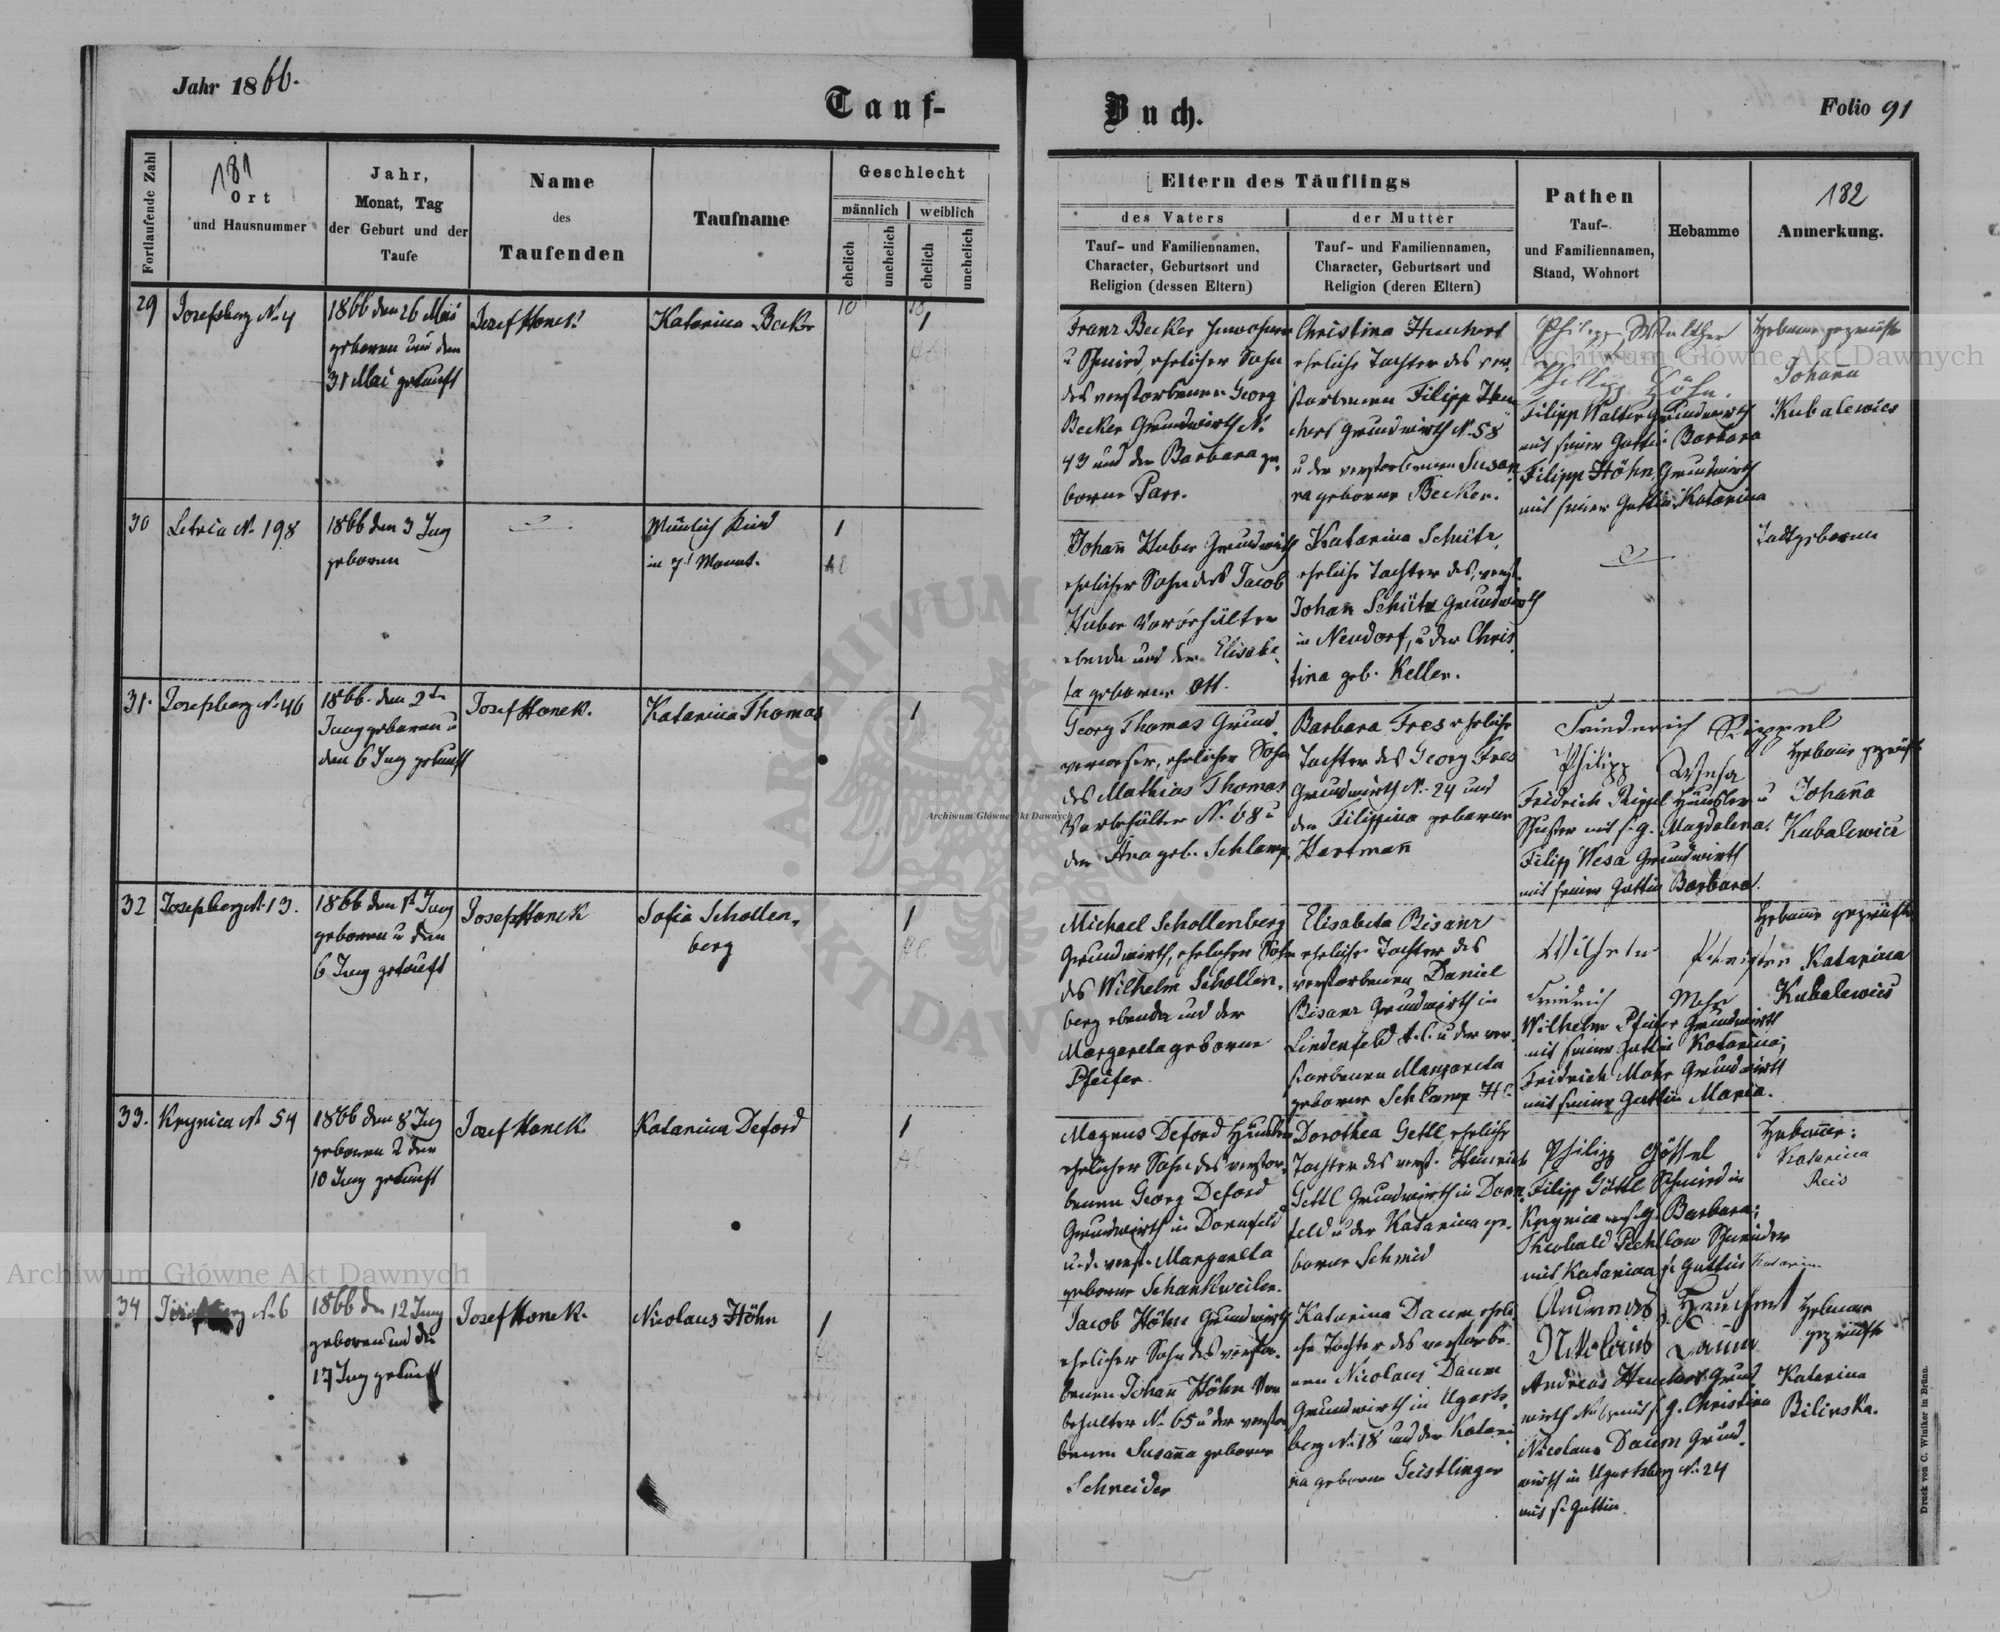 Jahr 1866.
Tauf-
Buch.
Folio 91
Fortlaufende Zahl
181
Ort
und Hausnummer
Jahr,
Monat, Tag
der Geburt und der
Taufe
Name
des
Taufenden
Taufname
Geschlecht
männlich
weiblich
ehelich
unehelich
ehelich
unehelich
Eltern des Täuflings
des Vaters
Tauf- und Familiennamen,
Character, Geburtsort und
Religion (dessen Eltern)
der Mutter
Tauf- und Familiennamen,
Character, Geburtsort und
Religion (deren Eltern)
Pathen
Tauf-
und Familiennamen,
Stand, Wohnort
Hebamme
182
Anmerkung.
29
Josefsberg N. 4
1866 den 26 Mai
geboren und den
31 Mai getauft
Josef Honek
Katarina Becker
1
Franz Becker
u Schmied, ehelicher Sohn
des verstorbenen Georg
Becker Grundwirth N.
43 und der Barbara ge
borne Parr.
Christina Heuchert
eheliche Tochter des ver
storbenen Filipp Heu
chert Grundwirth N. 58
u der verstorbenen Susan
na geborne Becker.
Philipp Walther
Phillipp Höhn.
Filipp Walter Grundwirth
mit seiner Gattin Barbara
Filipp Höhn, Grundwirth
mit seiner Gattin Katarina
Hebame geprüfte
Johana
Kubalewicz
30
Letnia N. 198
1866 den 3 Juny
geboren
Mänlich Kind
in 7t Monat.
1
Johann Huber Grundwirth
ehelicher Sohn des Jacob
Huber Vorbehälter
ebenda und der Elisabe
ta geborne Ott.
Katarina Schütz,
eheliche Tochter des verst.
Johan Schütz Grundwirth
in Neudorf, u der Chris
tina geb. Keller.
Todtgeboren
31.
Josefsberg N. 46
1866 den 2ten
Juny geboren u
den 6 Juny getauft
Josef Honek.
Katarina Thomas
1
Georg Thomas Grund
verweser, ehelicher Sohn
des Mathias Thomas
Vorbehälter N. 68 u
der Ana geb. Schlamp
Barbara Fres eheliche
Tochter des Georg Fres
Grundwirth N. 24 und
der Filippina geborne
Hartmann
Friederich Rippel
Philipp Wesa
Fridrich Rippel Häusler u
Schuster mit s. g. Magdalena.
Filipp Wesa Grundwirth
mit seiner Gattin Barbara.
Hebame geprüft
Johana
Kubalewicz
32
Josefsberg N. 13.
1866 den 1t Juny
geboren u den
6 Juny getauft
Josef Honek
Sofia Schollen,
berg
1
Michael Schollenberg
Grundwirth, ehelicher Sohn
des Wilhelm Schollen,
berg ebenda und der
Margareta geborne
Pfeifer.
Elisabeta Bisanz
eheliche Tochter des
verstorbenen Daniel
Bisanz Grundwirth in
Lindenfeld A. C. u der ver
storbenen Margareta
geborne Schlamp H C.
Wilhelm
Friedrich Mohr
Wilhelm Pfeifer Grundwirth
mit seiner Gattin Katarina;
Fridrich Mohr Grundwirth
mit seiner Gattin Maria.
Hebame geprüfte
Katarina
Kubalewicz
33.
Krynica N. 54
1866 den 8 Juny
geboren u den
10 Juny getauft
Josef Honek
Katarina Deford
1
Magnus Deford Häusler
ehelicher Sohn des verstor
benen Georg Deford
Grundwirth in Dornfeld
u. d. verst. Margareta
geborne Schankweiler.
Dorothea Gettl, eheliche
Tochter des verst. Heinrich
Gettl Grundwirth in Dorn,
feld u der Katarina ge,
borne Schmid
Philipp Göttel
Filipp Göttl Schmied in
Krynica mit s. g. Barbara;
Theobald Schneider
mit Katarina s. Gattin
Hebamme:
Katarina
Reis
34
N. 6
1866 den 12 Juny
geboren und den
17 Juny getauft
Josef Honek.
Nicolaus Höhn
1
Jacob Höhn Grundwirth
ehelicher Sohn des verstor
benen Johann Höhn Vor
behalter N. 65 u der verstor
benen Susanna geborne
Schneider
Katarina Daum eheli
che Tochter des verstorbe
nen Nicolaus Daum
Grundwirth in Ugarts,
berg N. 18 und der Katari
na geborne Geistlinger
Andreas Heuchert
Nikolaus Daum
Andreas Heuchert Grund
wirth mit s. g. Christina
Nicolaus Daum Grund,
wirth in Ugartsberg N. 24
mit s. Gattin.
Hebame
geprüfte
Katarina
Bilinska.
Druck von C. Winiker in Brünn.
Archiwum Główne Akt Dawnych
Archiwum Główne Akt Dawnych
Archiwum Główne Akt Dawnych
ARCHIWUM
AKT DAWNYCH